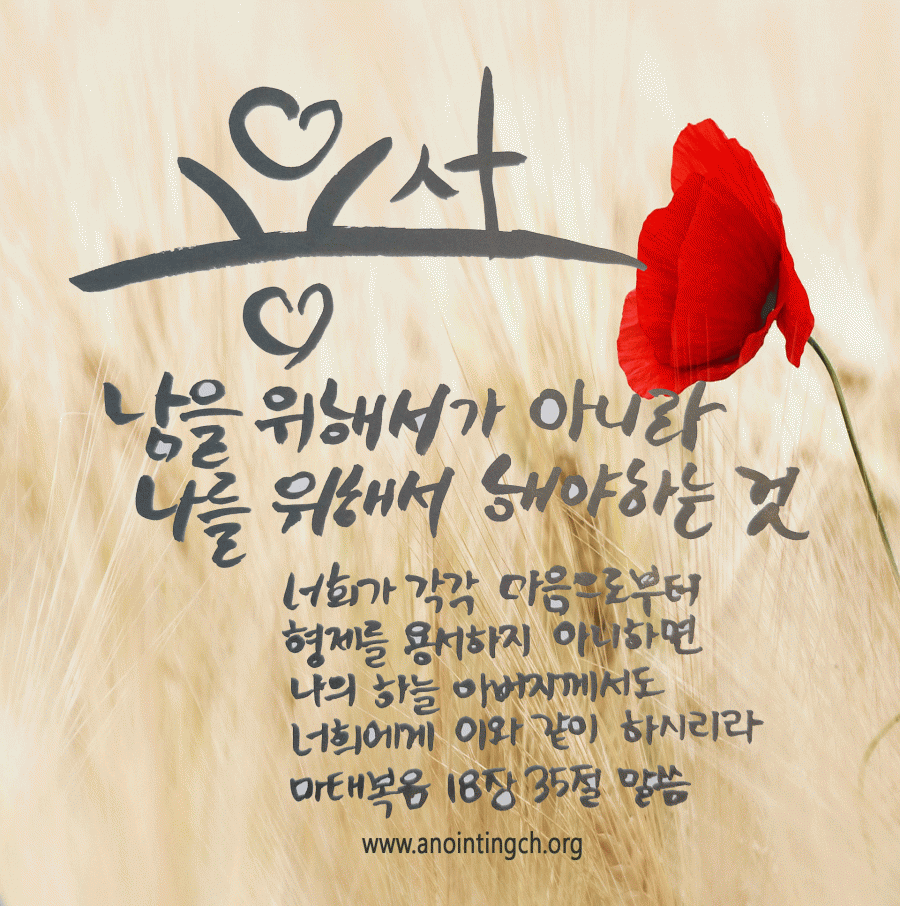 용서
남을 위해서가 아니라
나를 위해서 해야하는 것
너희가 각각 마음으로부터
형제를 용서하지 아니하면
나의 하늘 아버지께서도
너희에게 이와 같이 하시리라
마태복음 18장 35절 말씀
www.anointingch.org